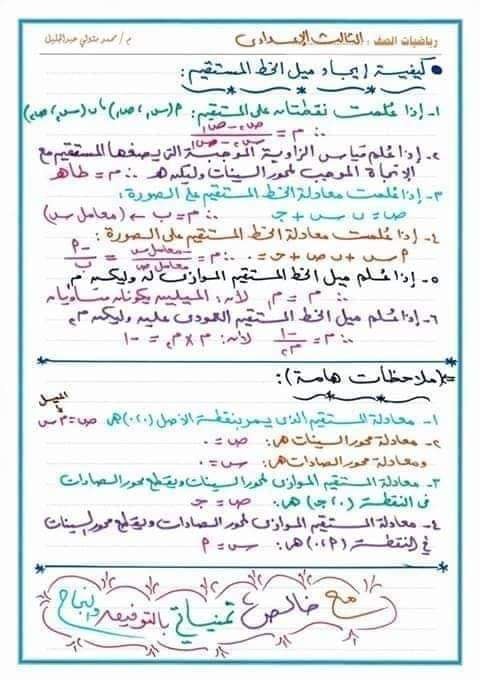 رياضيات الصف: الثالث الإعدادى
م / محمد متولي عبدالجليل
● كيفية إيجاد ميل الخط المستقيم:
١- إذا عُلمت نقطتان على المستقيم: م(س١، ص١)، ن(س٢، ص٢)
∴ م = (ص٢ - ص١) / (س٢ - س١)
٢- إذا عُلم قياس الزاوية الموجبة التى يصنعها المستقيم مع
الإتجاه الموجب لمحور السينات وليكن هـ ∴ م = طا هـ
٣- إذا عُلمت معادلة الخط المستقيم على الصورة:
ص = ب س + جـ ∴ م = ب ← (معامل س)
٤- إذا عُلمت معادلة الخط المستقيم على الصورة:
أ س + ب ص + جـ = ٠ ∴ م = -معامل س / معامل ص = -أ / ب
٥- إذا عُلم ميل الخط المستقيم الموازى له وليكن م١
∴ م = م١ لأن: الميلين يكونان متساويان
٦- إذا عُلم ميل الخط المستقيم العمودى عليه وليكن م٢
∴ م = -١ / م٢ لأن: م × م٢ = -١
(ملاحظات هامة):
١- معادلة المستقيم الذى يمر بنقطة الأصل (٠،٠) هى ص = م س
الميل
٢- معادلة محور السينات هى: ص = ٠
ومعادلة محور الصادات هى: س = ٠
٣- معادلة المستقيم الموازى لمحور السينات ويقطع محور الصادات
فى النقطة (٠، جـ) هى: ص = جـ
٤- معادلة المستقيم الموازى لمحور الصادات ويقطع محور السينات
في النقطة (أ، ٠) هى: س = أ
مع خالص تمنياتي بالتوفيق والنجاح